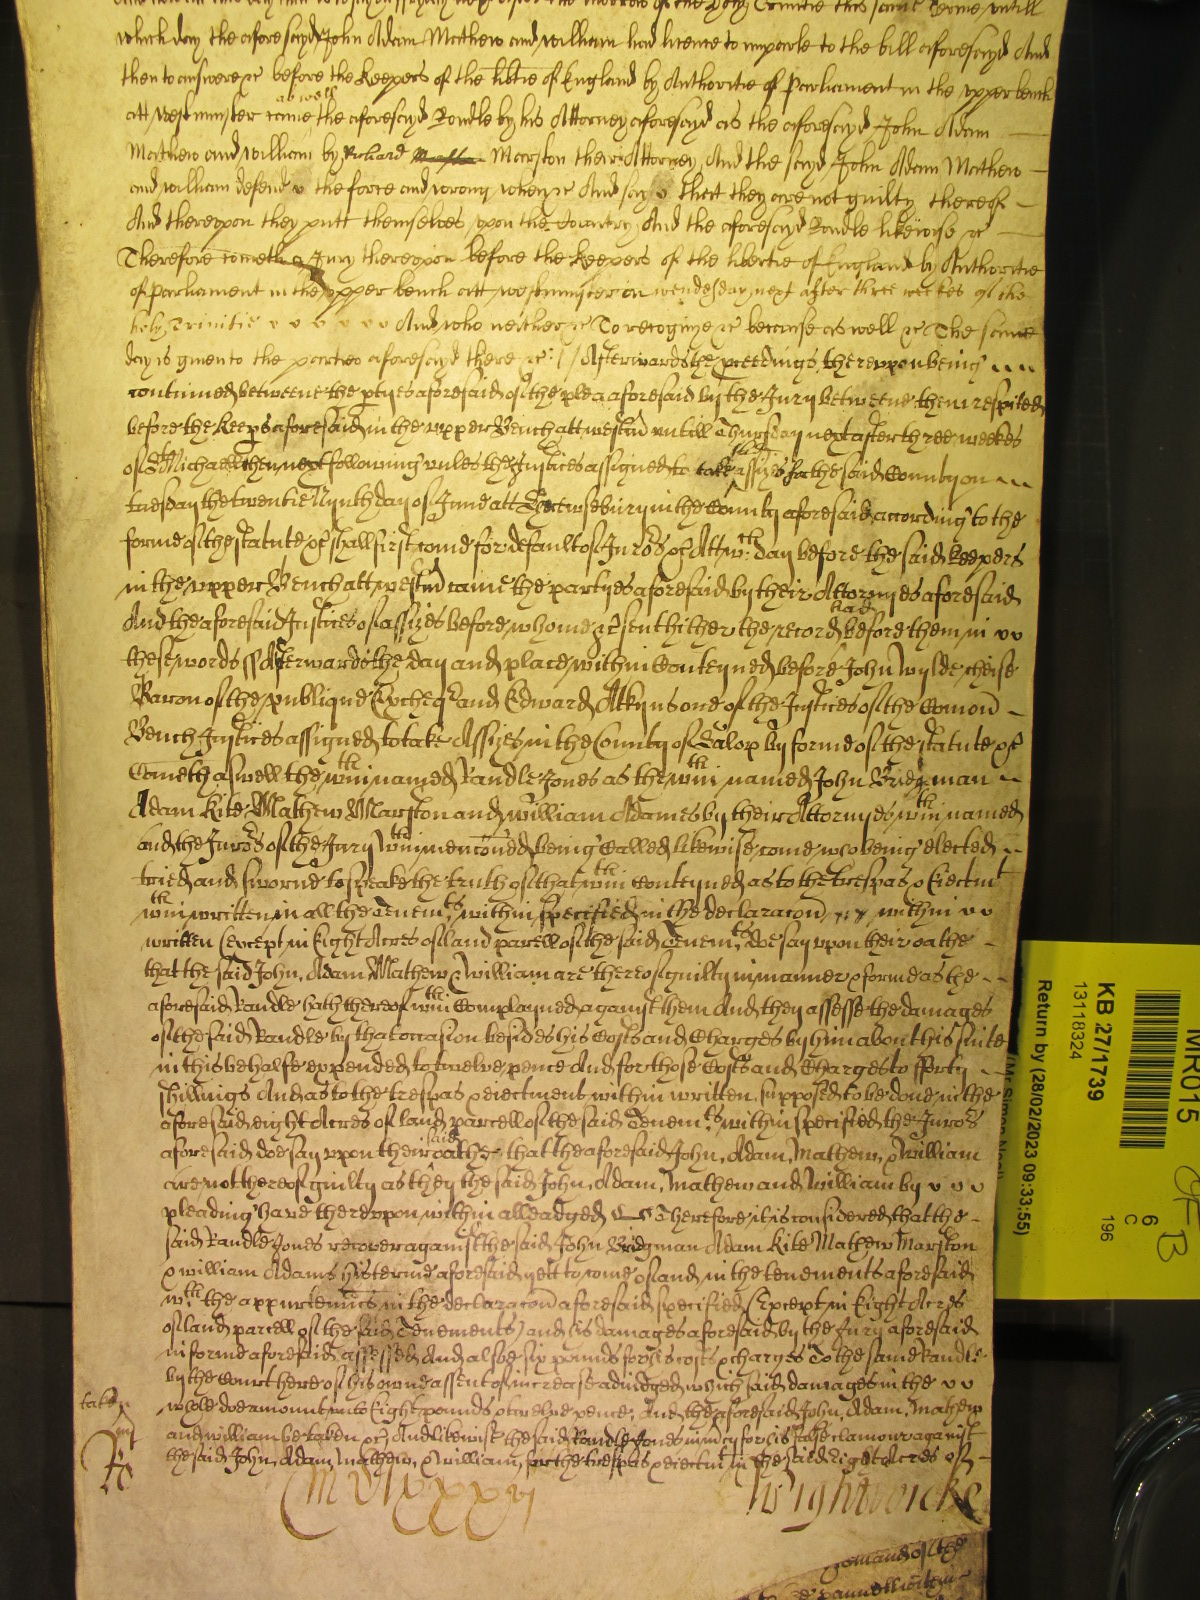 which day the aforesayd John Adam Mathew and william had licence to imparle to the bill aforesayd And
then to answere &c before the Keepers of the lib̃tie of England by Authoritie of Parliament in the upper bench
att westminster came as well the aforesayd Randle by his Attorney aforesayd as the aforesayd John Adam
Mathew and william by Richard Marston their Attorney, And the sayd John Adam Mathew
and william defend the force and wrong when &c And say that they are not guilty thereof
And thereupon they putt themselves upon the Country, And the aforesayd Randle likewise &c
Therefore cometh a Jury thereupon before the Keepers of the libertie of England by Authoritie
of Parliament in the upper bench att westminster on wendesday next after three weekes of the
holy Trinitie And who neither &c To recognize &c because as well &c The same
day is given to the parties aforesayd there &c // Afterwards the p̱ceedings thereupon being
continued betweene the ptyes aforesaid of the plea aforesaid by the Jury betweene them respited
before the Keeps aforesaid in the upper Bench att westm̃ untill Thursday next after three weekes
of St Michaell then next following unles the Justices assigned to take assizes for the said County on
tuesday the twentie Nynth day of June att Shrewsbury in the County aforesaid according to the
forme of the statute &c shall first come for default of Juro:rs &c Att wch day before the said keepers
in the upper Bench att westm̃ came the partyes aforesaid by their Attornyes aforesaid
And the aforesaid Justices of assizes before whome &c sent hither the record had before them in
these words ss Afterwards the day and place within Conteyned before John Wylde cheife
Baron of the publique Excheqr and Edward Atkyns one of the Justices of the Com̃on
Bench Justices assigned to take Assizes in the County of Salop by forme of the statute &c
Cometh aswell the wthin named Randle Jones as the wthin named John Bridgman
Adam Kite Mathew Marston and william Adames by their Attornyes wthin named
and the Juro:rs of the Jury wthin menc̃oned being Called likewise come who being elected
tried and sworne to speake the truth of that wthin Conteyned as to the trespas & Eiectmt
wthin written in all the Tenemts within specified in the declarac̃on within
written (except in Eight Acres of land parcell of the said Tenemts) doe say upon their oathe
that the said John, Adam Mathew & william are thereof guilty in manner & forme as the
aforesaid Randle hath thereof wthin Complayned against them And they assesse the damages
of the said Randle by that occasion besides his Costs and Charges by him about his suite
in this behalfe expended to twelve pence And for those Costs and Charges to fforty
shillings And as to the trespas & eiectment within written supposed to be done in the
aforesaid eight Acres of land parcell of the said Tenemts within specified the Juro:rs
aforesaid doe say upon their said oathe that the aforesaid John, Adam, Mathew, & william
are not thereof guilty as they the said John, Adam, Mathew and William by
pleading have thereupon within alleadged Therefore it is considered that the
said Randle Jones recover against the said John Bridgman Adam Kite Mathew Marston
& william Adams his terme aforesaid yett to come of and in the tenements aforesaid
wth the appurtenncs in the declarac̃on aforesaid specified (Except in Eight Acres
of land parcell of the said Tenements) and his damages aforesaid by the Jury aforesaid
in forme aforesaid assessed And alsoe six pounds for his costs & charges To the same Randle
by the Court here of his owne assent of increase adiudged which said damages in the
whole doe amount unto Eight pounds & twelve pence, And the aforesaid John, Adam, Mathew
and william be taken &c And likewise the said Randle Jones in mercy for his false clamour against
the said John, Adam, Mathew, & william, for the trespas & eiectmt in the said Eight Acres of
m Dlxxxvj
Wightwicke
MR015
KB 27/1739
13118324
Return by (28/02/2023 09:33:55)
6
C
196